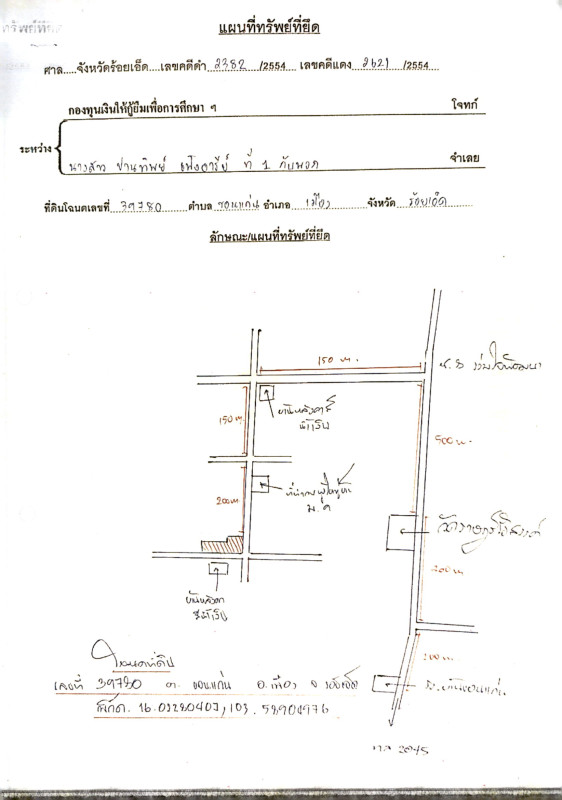 แผนที่ทรัพย์ที่ยึด
ศาล.....จังหวัดร้อยเอ็ด....เลขคดีดำ 2382 /2554 เลขคดีแดง 2621 /2554
กองทุนเงินให้กู้ยืมเพื่อการศึกษา ฯ โจทก์
ระหว่าง
นางสาว ที่ 1 กับพวก จำเลย
ที่ดินโฉนดเลขที่ 39780 ตำบล ขอนแก่น อำเภอ เมือง จังหวัด ร้อยเอ็ด
ลักษณะ/แผนที่ทรัพย์ที่ยึด
150 ม.
150 ม.
บ้านหลังคา
สีน้ำเงิน
500 ม.
200 ม.
ที่ทำการผู้ใหญ่บ้าน
ม. ๓
200 ม
บ้านหลังคา
สีน้ำเงิน
โฉนดที่ดิน
200 ม
เลขที่ 39780 ต. ขอนแก่น อ.เมือง จ ร้อยเอ็ด
ร.ร.บ้านขอนแก่น
พิกัด. 16.03280403, 103.58904976
ทล 2045